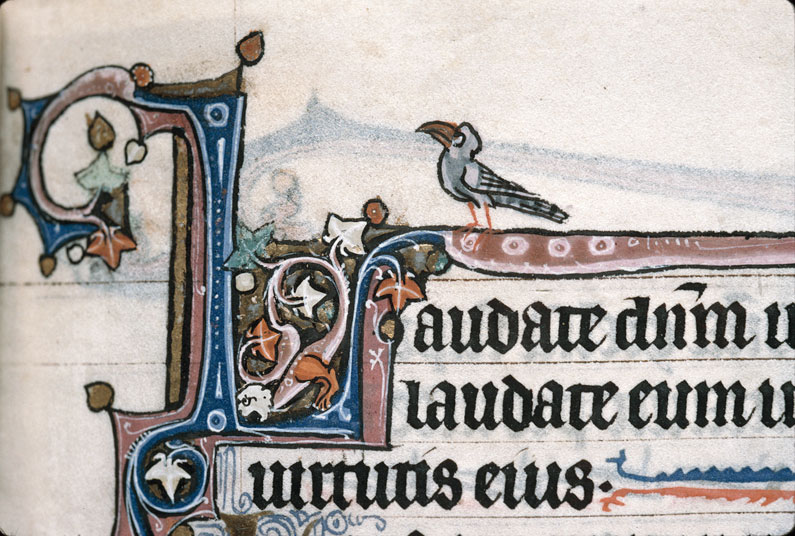 Laudate dnm̄ 
laudate eum
uirtutis eius.